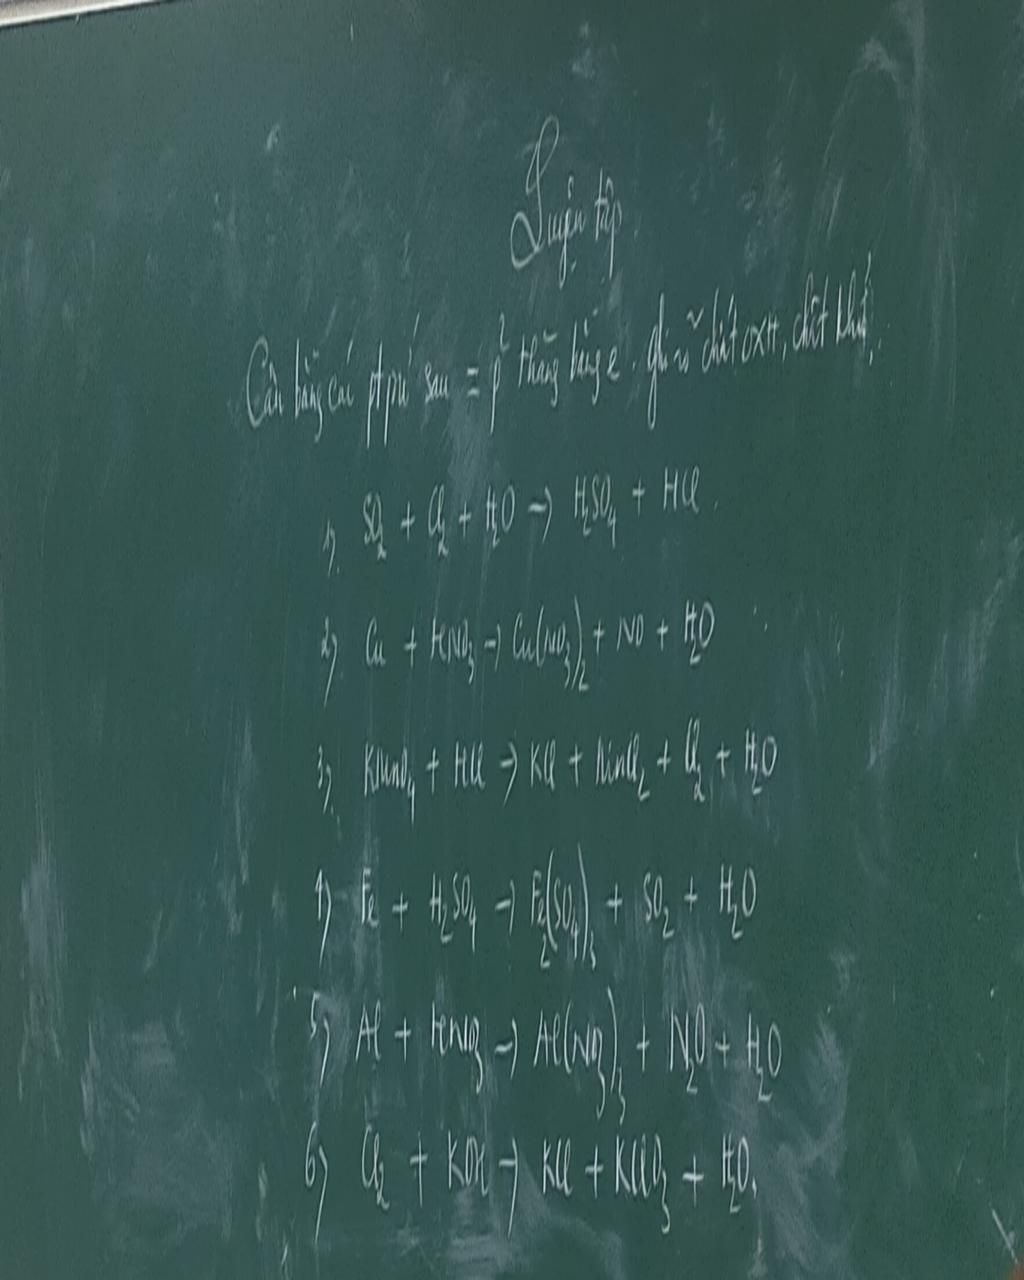 Luyện tập
Cân bằng các ptpứ sau = p² thăng bằng e. ghi rõ chất oxH, chất khử.
1, SO₂ + Cl₂ + H₂O → H₂SO₄ + HCl.
2, Cu + HNO₃ → Cu(NO₃)₂ + NO + H₂O
3, KMnO₄ + HCl → KCl + MnCl₂ + Cl₂ + H₂O
4, Fe + H₂SO₄ → Fe₂(SO₄)₃ + SO₂ + H₂O
5, Al + HNO₃ → Al(NO₃)₃ + N₂O + H₂O
6, Cl₂ + KOH → KCl + KClO₃ + H₂O.